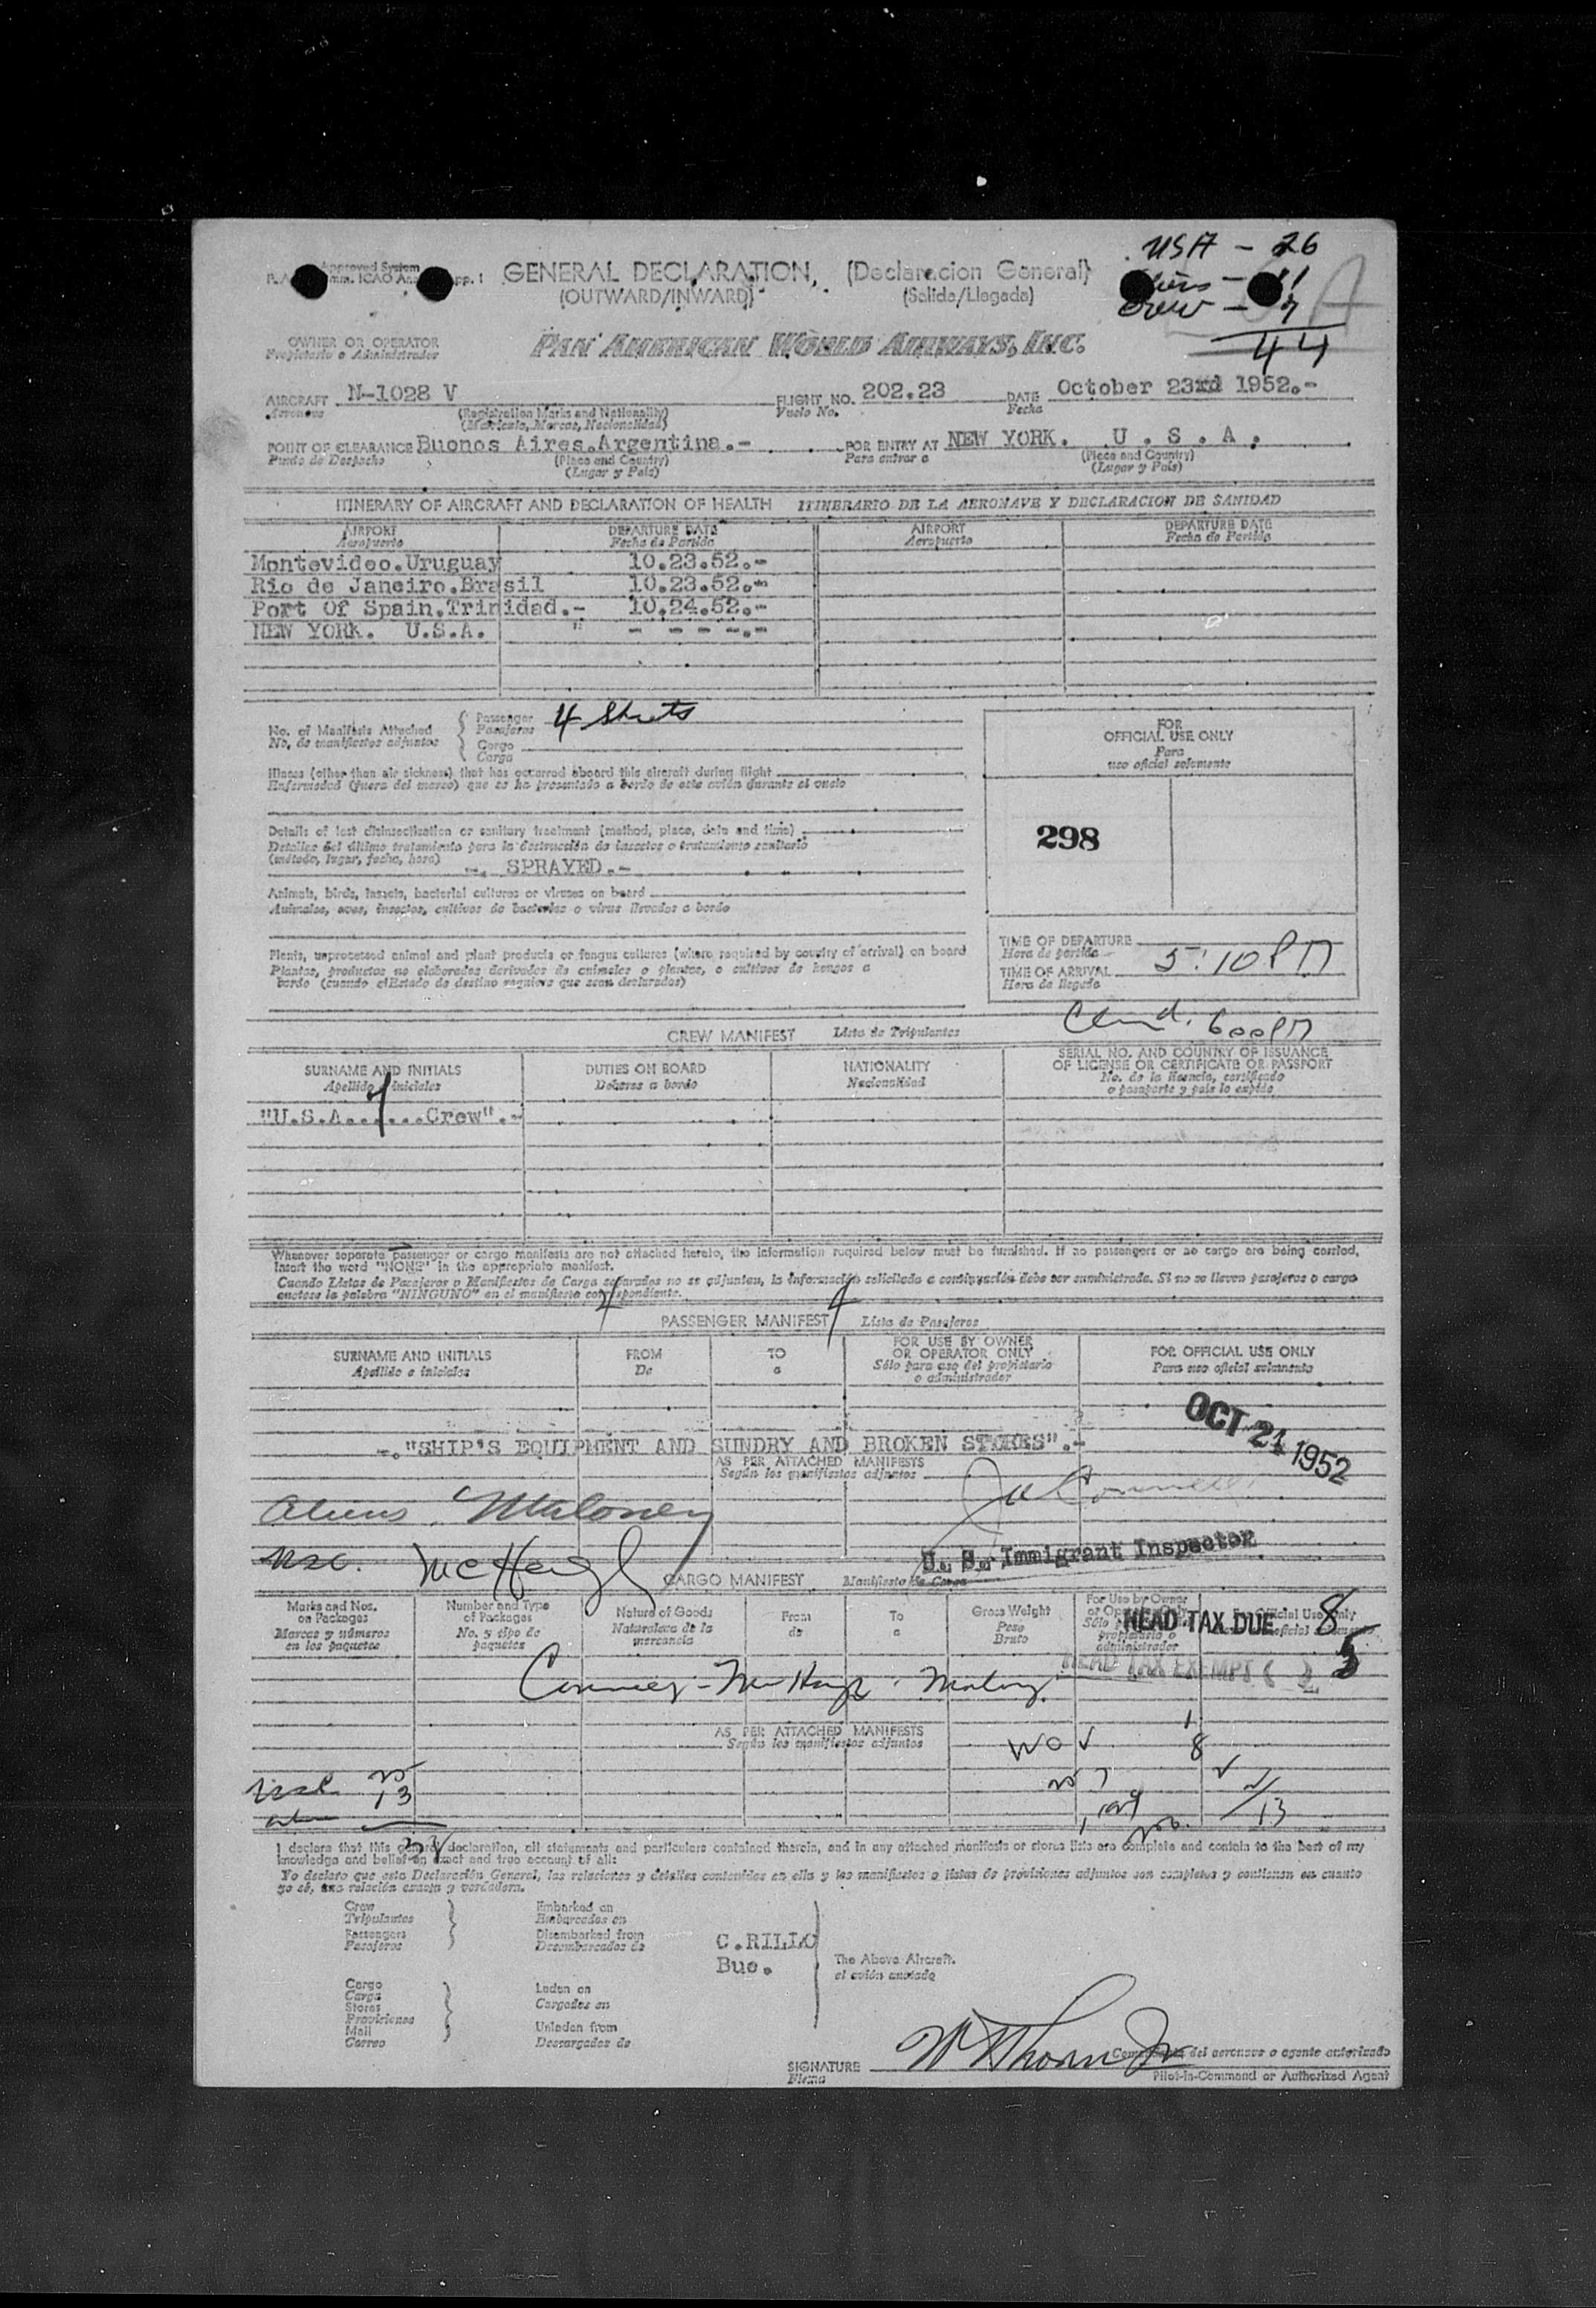 USA - 26
GENERAL DECLARATION, (Declaracion General)
(OUTWARD/INWARD) (Salida/Llegada)
Crew - 7
44
OWNER OR OPERATOR
Propietario o Administrador
PAN AMERICAN WORLD AIRWAYS, INC.
AIRCRAFT N-1028 V FLIGHT NO. 202.23 DATE October 23rd 1952.-
Aeronave (Registration Marks and Nationality) Vuelo No. Fecha
(Matricula, Marcas, Nacionalidad)
POINT OF CLEARANCE Buenos Aires.Argentina.- FOR ENTRY AT NEW YORK. U.S.A.
Punto de Despacho (Place and Country) Para entrar a (Place and Country)
(Lugar y País) (Lugar y País)
ITINERARY OF AIRCRAFT AND DECLARATION OF HEALTH ITINERARIO DE LA AERONAVE Y DECLARACION DE SANIDAD
AIRPORT DEPARTURE DATE AIRPORT DEPARTURE DATE
Aeropuerto Fecha de Partida Aeropuerto Fecha de Partida
Montevideo.Uruguay 10.23.52.-
Rio de Janeiro.Brasil 10.23.52.-
Port Of Spain.Trinidad.- 10.24.52.-
NEW YORK. U.S.A. " - - - -.-
No. of Manifests Attached Passenger 4 Sheets
No. de manifiestos adjuntos Pasajeros
Cargo
Carga
FOR
OFFICIAL USE ONLY
Para
uso oficial solamente
Illness (other than air sickness) that has occurred aboard this aircraft during flight
Enfermedad (fuera del mareo) que se ha presentado a bordo de este avión durante el vuelo
298
Details of last disinsectization or sanitary treatment (method, place, date and time)
Detalles del último tratamiento para la destrucción de insectos o tratamiento sanitario
(método, lugar, fecha, hora)
-. SPRAYED.-
Animals, birds, insects, bacterial cultures or viruses on board
Animales, aves, insectos, cultivos de bacterias o virus llevados a bordo
Plants, unprocessed animal and plant products or fungus cultures (where required by country of arrival) on board
Plantas, productos no elaborados derivados de animales o plantas, o cultivos de hongos a
bordo (cuando el Estado de destino requiere que sean declarados)
TIME OF DEPARTURE
Hora de partida 5:10 PM
TIME OF ARRIVAL
Hora de llegada
600PM
CREW MANIFEST Lista de Tripulantes
SURNAME AND INITIALS DUTIES ON BOARD NATIONALITY SERIAL NO. AND COUNTRY OF ISSUANCE
OF LICENSE OR CERTIFICATE OR PASSPORT
Apellido e iniciales Deberes a bordo Nacionalidad No. de la licencia, certificado
o pasaporte y país lo expide
"U.S.A.......Crew".-
7
Whenever separate passenger or cargo manifests are not attached hereto, the information required below must be furnished. If no passengers or no cargo are being carried,
insert the word "NONE" in the appropriate manifest.
Cuando Listas de Pasajeros o Manifiestos de Carga separados no se adjuntan, la información solicitada a continuación debe ser suministrada. Si no se llevan pasajeros o carga
anótese la palabra "NINGUNO" en el manifiesto correspondiente.
PASSENGER MANIFEST Lista de Pasajeros
SURNAME AND INITIALS FROM TO FOR USE BY OWNER FOR OFFICIAL USE ONLY
OR OPERATOR ONLY
Apellido e iniciales De a Sólo para uso del propietario Para uso oficial solamente
o administrador
OCT 24 1952
-."SHIP'S EQUIPMENT AND SUNDRY AND BROKEN STORES".-
AS PER ATTACHED MANIFESTS
Según los manifiestos adjuntos
Aliens. Maloney
U. S. Immigrant Inspector
CARGO MANIFEST Manifiesto de Carga
Marks and Nos. Number and Type Nature of Goods From To Gross Weight For Use by Owner
on Packages of Packages Naturaleza de la de a Peso
Marcas y números No. y tipo de mercancía Bruto
en los paquetes paquetes administrador
HEAD TAX DUE 8
HEAD TAX EXEMPT ( ) 5
AS PER ATTACHED MANIFESTS
Según los manifiestos adjuntos
13
13
I declare that this general declaration, all statements and particulars contained therein, and in any attached manifests or stores lists are complete and contain to the best of my
knowledge and belief an exact and true account of all:
Yo declaro que esta Declaración General, las relaciones y detalles contenidos en ella y los manifiestos o listas de provisiones adjuntos son completos y contienen en cuanto
yo sé, una relación exacta y verdadera.
Crew Embarked on
Tripulantes Embarcados en
Passengers Disembarked from C.RILLO
Pasajeros Desembarcados de Bue.
The Above Aircraft.
el avión anotado
Cargo Laden on
Carga Cargados en
Stores
Provisiones Unladen from
Mail Descargados de
Correo
SIGNATURE
Firma
Comandante del aeronave o agente autorizado
Pilot-in-Command or Authorized Agent